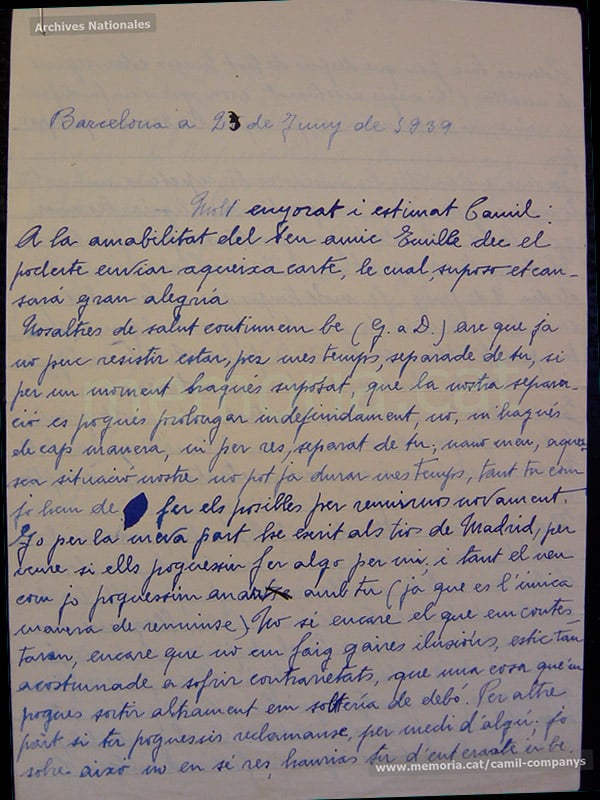 Archives Nationales
Barcelona a 23 de Juny de 1939
Molt enyorat i estimat Camil:
A la amabilitat del teu amic Emille dec el
poderte enviar aqueixa carte, le cual, suposo et can-
sará gran alegría
Nosaltres de salut continuem be (G. a D.) are que ja
no puc resistir estar, per mes temps, separade de tu, si
per un moment hagués suposat, que la nostra separa-
ció es pogués prolongar indefinidament, no, m'hagués
de cap manera, ni per res, separat de tu; nano meu, aquei-
sea situació nostre no pot ja durar mes temps, tant tu com
jo hem de fer els posibles per reunirnos novament.
Jo per la meva part he escrit als tios de Madrid, per
veure si ells poguessin fer algo per mi; i tant el nen
com jo poguessim anar amb tu (ja que es l'única
manera de reunirse). No sé encare el que em contes-
taran, encare que no em faig gaires ilusións, estic tan
acostumade a sofrir contrarietats, que una cosa que'm
pogues sortir altrament em soltería de debó. Per altre
part si tu poguessis reclamarse, per medi d'algú; jo
sobre aixó no en sé res, hauries tu d'enterarte'n be.
www.memoria.cat/camil-companys
memoria.cat